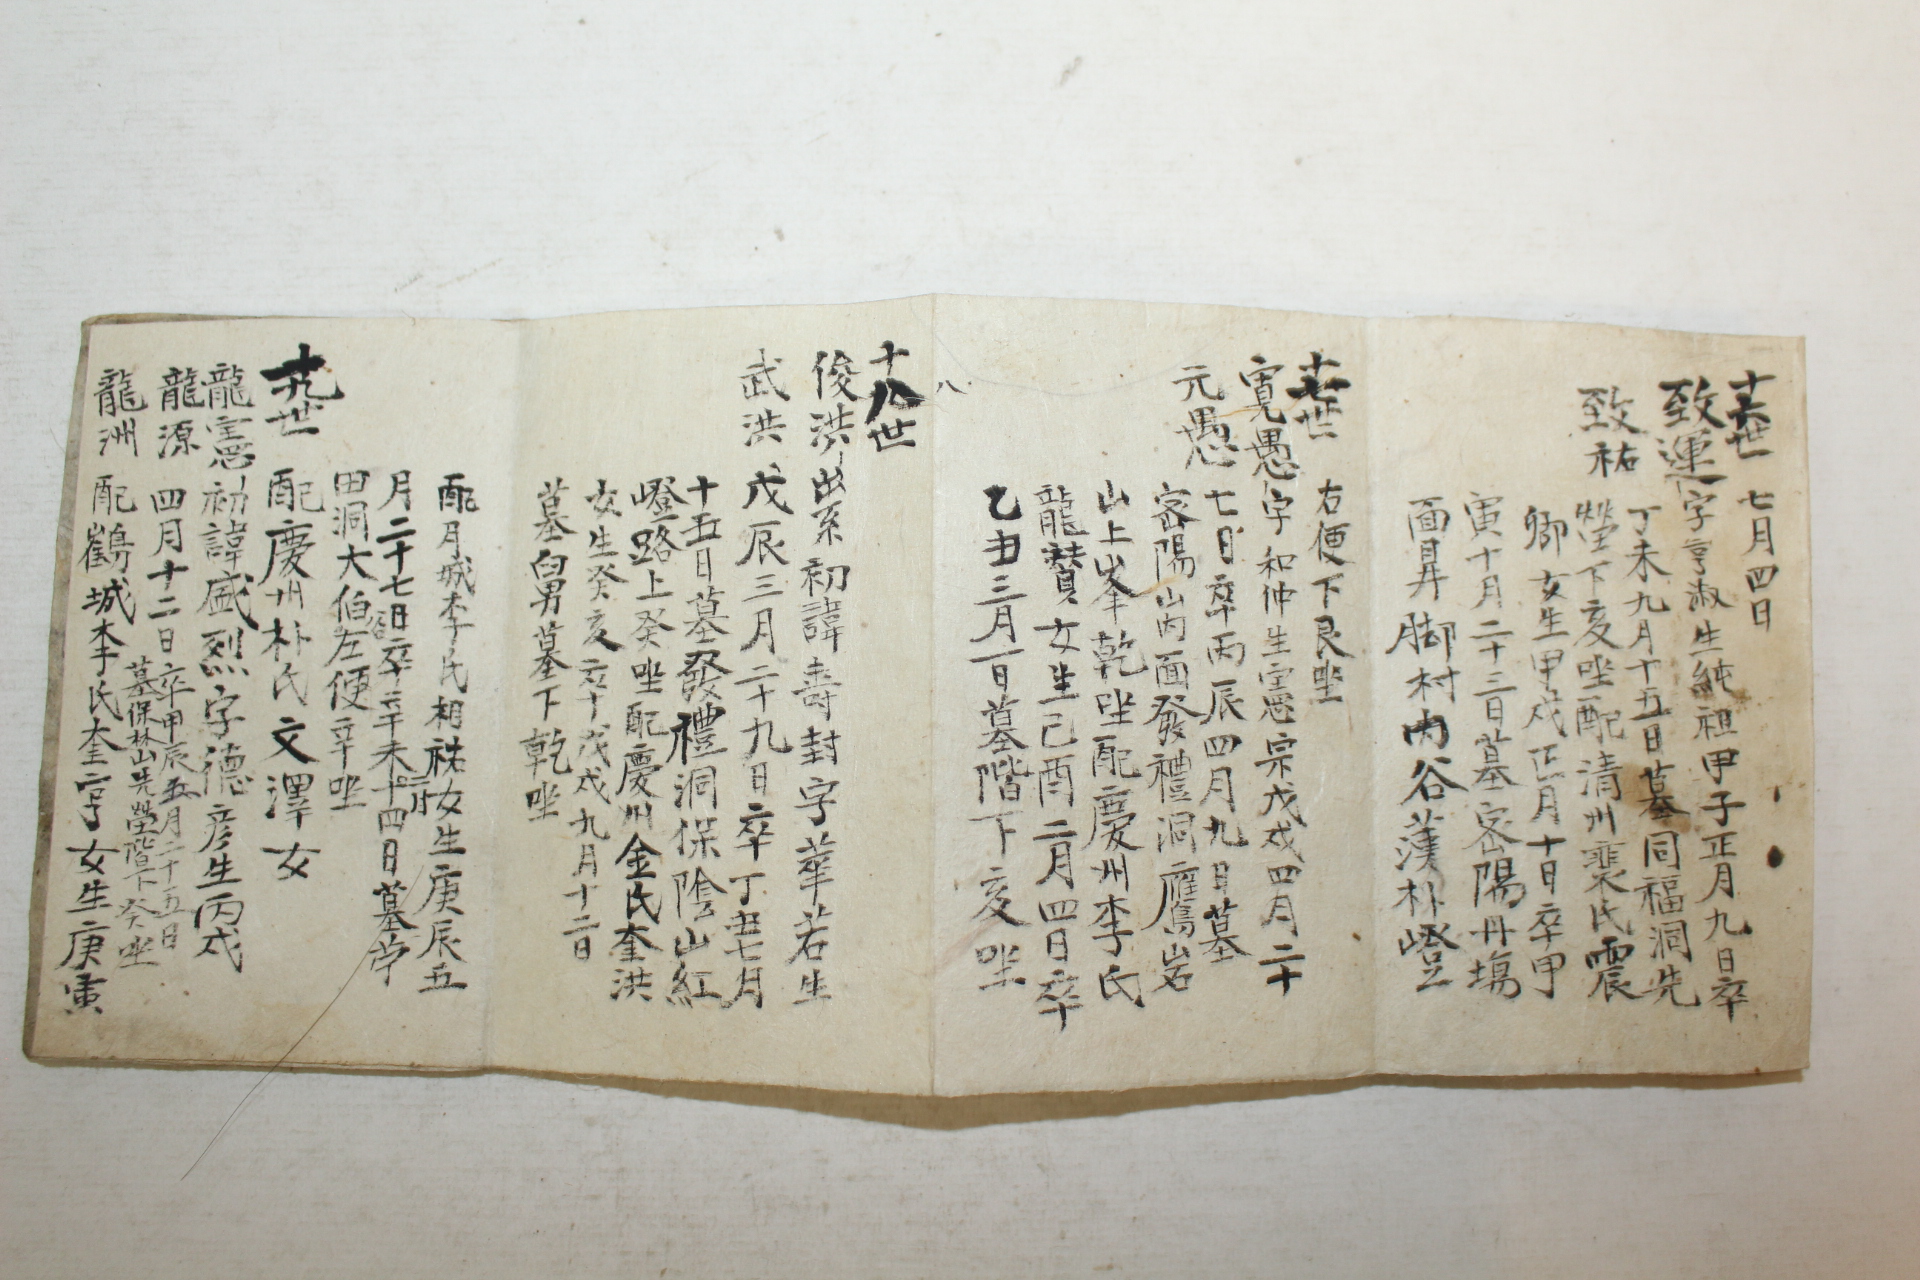 十六世 七月四日
致運 字亨淑生純祖甲子正月九日卒
丁未九月十五日墓同福洞先
致祐 塋下亥坐配清州裵氏震
卿女生甲戌正月十日卒甲
寅十月二十三日墓密陽丹場
面昇脚村內谷漢朴嶝
十七世 右便下艮坐
寬愚 字和仲生憲宗戊戌四月二十
元愚 七日卒丙辰四月九日墓
密陽山內面發禮洞鴈岩
山上峯乾坐配慶州李氏
龍贊女生己酉二月四日卒
乙丑三月一日墓階下亥坐
八
十八世
俊洪 出系初諱壽封字華若生
武洪 戊辰三月二十九日卒丁丑七月
十五日墓發禮洞保陰山紅
嶝路上癸坐配慶州金氏奎洪
女生癸亥卒戊戌九月十二日
墓舅墓下乾坐
配月城李氏相祐女生庚辰五
月二十七日卒辛未十二月十四日墓
田洞大伯谷左便辛坐
十九世 配慶州朴氏文澤女
龍憲 初諱盛烈字德彦生丙戌
龍源 四月十二日卒甲辰五月二十五日
墓保林山先塋階下癸坐
龍洲 配鶴城李氏奎亨女生庚寅